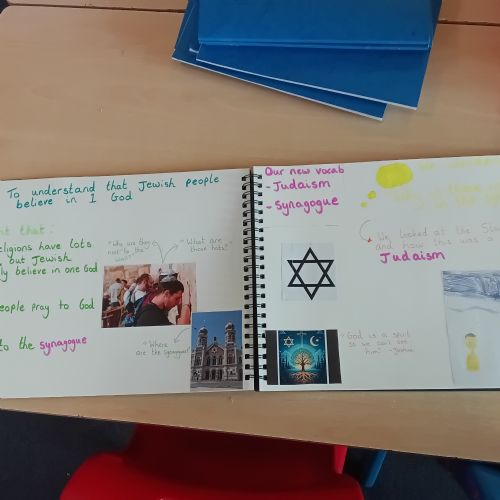 To understand that Jewish people
believe in 1 God
nt that:
religions have lots
but Jewish
ly believe in one God
eople pray to God
to the synagogue
"Why are they
next to the
wall?"
"What are
those hats?"
"Where
are the synagogues?"
Our new vocab
- Judaism
- Synagogue
We looked at the Star
and how this was a
Judaism
"God is a spirit
so we can't see
him"